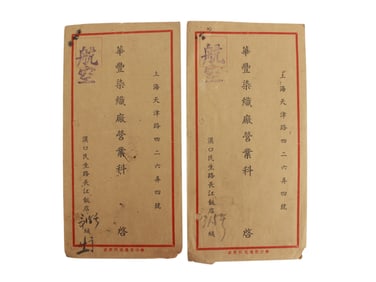 航空
上海天津路四二六弄四號
華豐染織廠營業科 啓
漢口民生路長江飯店 緘
航空
上海天津路四二六弄四號
華豐染織廠營業科 啓
漢口民生路長江飯店 緘